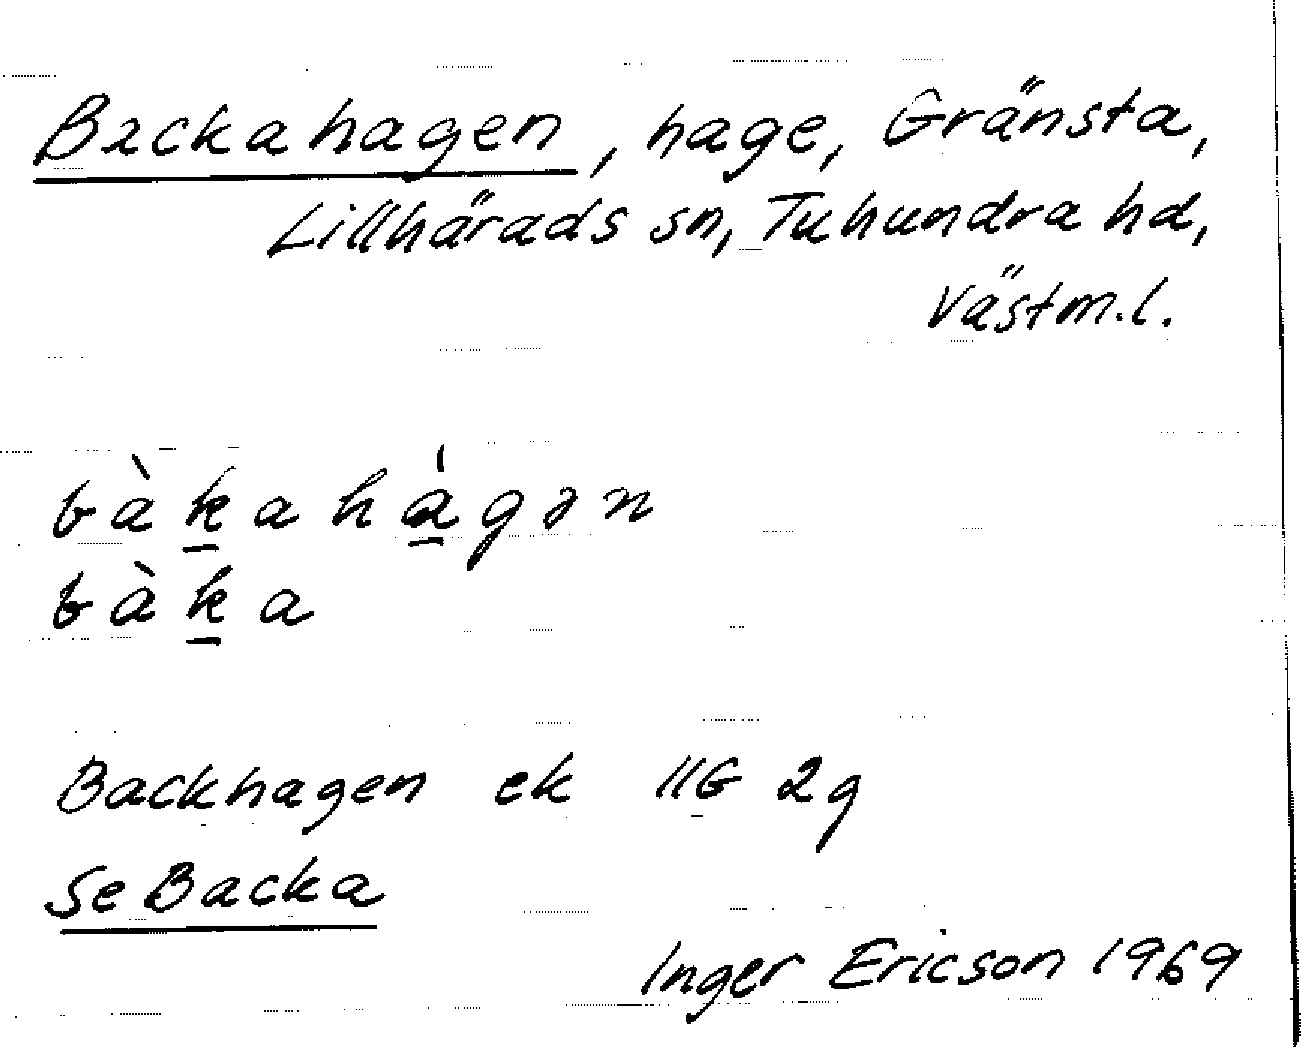 Backahagen, hage, Gränsta,
Lillhärads sn, Tuhundra hd,
Västm.l.
bàk̲ahà̲gən
bàk̲a
Backhagen ek 11G 2g
Se Backa
Inger Ericson 1969